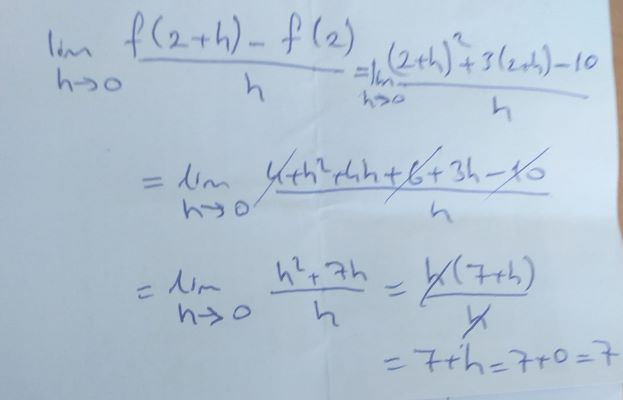 lim h→0 f(2+h) - f(2) / h = lim h→0 (2+h)² + 3(2+h) - 10 / h
= lim h→0 4+h²+4h+6+3h-10 / h
= lim h→0 h²+7h / h = h(7+h) / h
= 7+h = 7+0 = 7